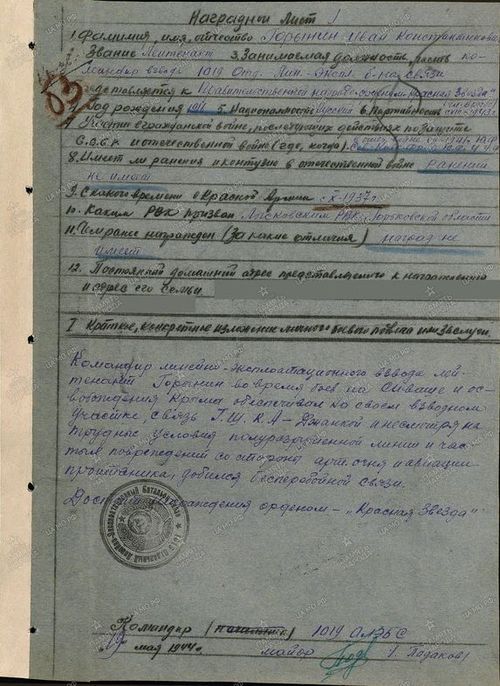 Наградной лист
1. Фамилия, имя, отчество Горынин Иван Константинович
2. Звание Лейтенант 3. Занимаемая должность, часть ко-
мандир взвода 1019 Отд. Лин. Экспл. б-на связи
представляется к Правительственной награде орденом "Красная Звезда"
4. Год рождения 1911 5. Национальность русский 6. Партийность
7. Участие в гражданской войне, последующих действиях по защите
С.С.С.Р. и отечественной войне (где, когда)
8. Имеет ли ранения и контузии в отечественной войне Ранений
не имеет
9. С какого времени в Красной Армии с X-1937г.
10. Каким РВК призван Лысковским РВК, Горьковской области
11. Чем ранее награжден (За какие отличия) наград не
имеет
12. Постоянный домашний адрес представляемого к награждению
и адрес его семьи
I Краткое, конкретное изложение личного боевого подвига или заслуг.
Командир линейно-эксплоатационного взвода лей-
тенант Горынин во время боев на Сиваше и ос-
вобождения Крыма обеспечивал на своем взводном
участке, связь Г.Ш.К.А – Джанкой и несмотря на
трудные условия полуразрушенной линии и час-
тых повреждений со стороны арт. огня и авиации
противника, добился бесперебойной связи.
награждения орденом – "Красная Звезда"
Командир (начальник) 1019 ОЛЭБС
мая 1944г. майор